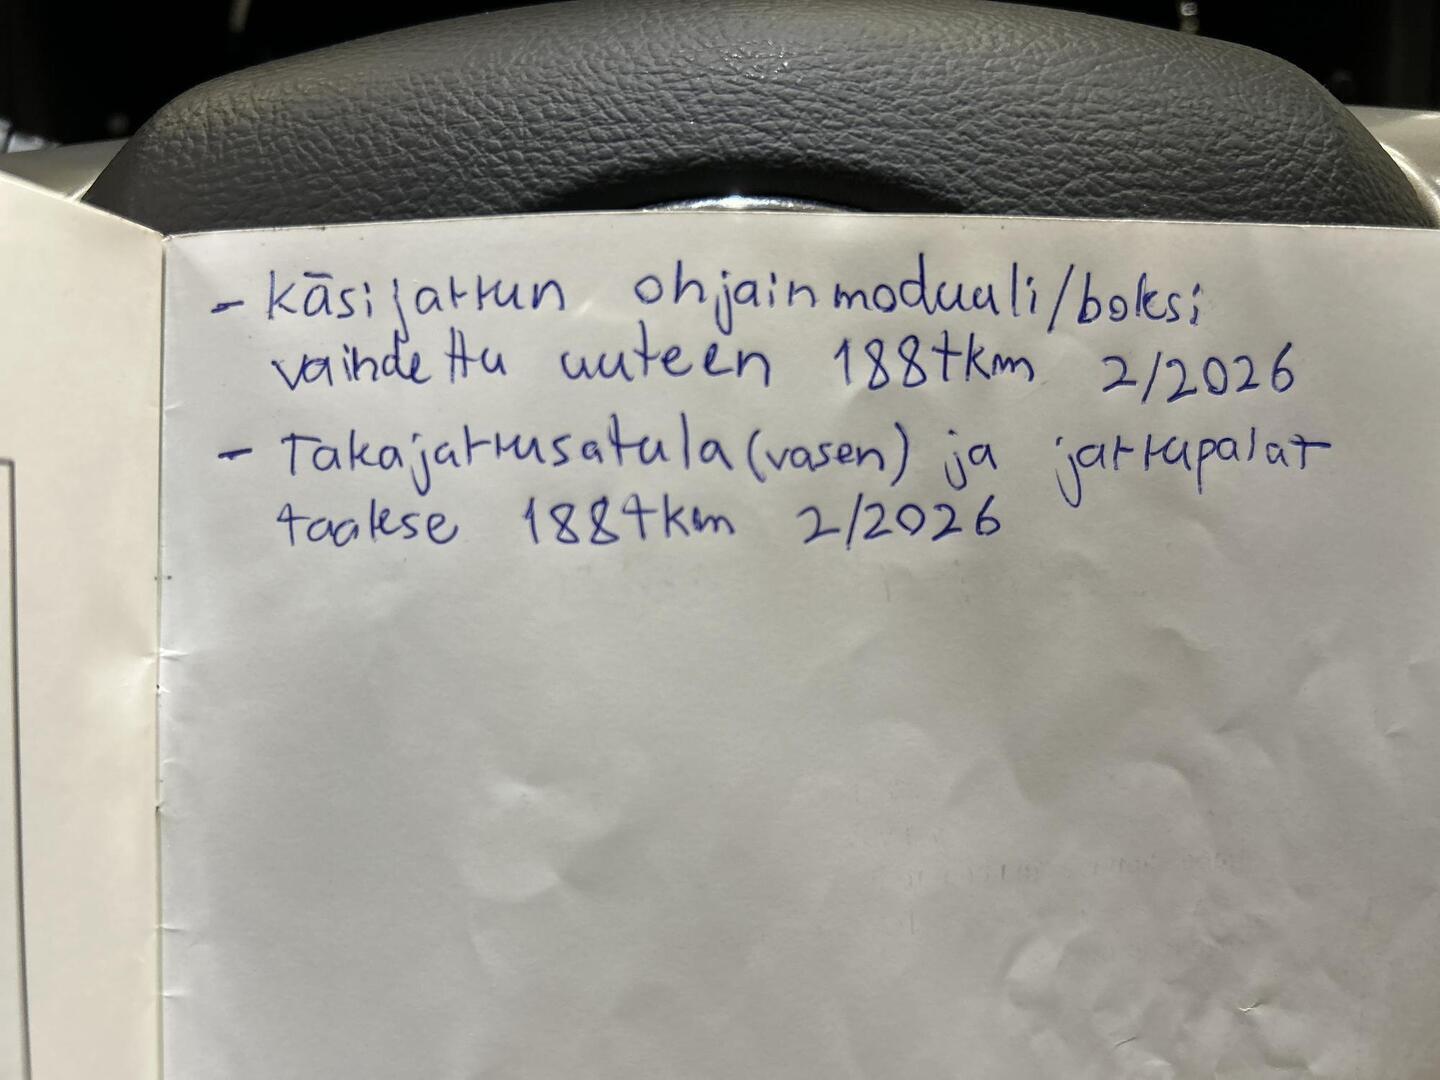 - Käsijarrun ohjainmoduuli/boksi
vaihdettu uuteen 188tkm 2/2026
- Takajarrusatula (vasen) ja jarrupalat
taakse 188tkm 2/2026